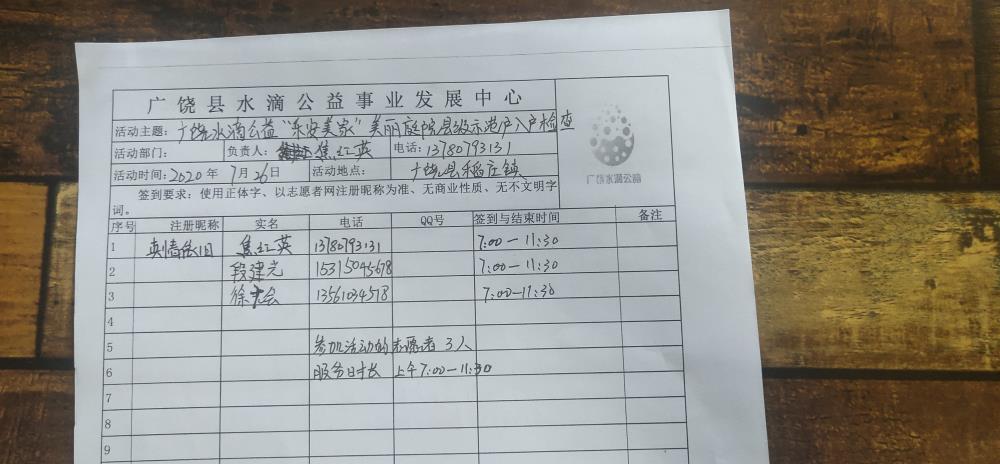 广饶县水滴公益事业发展中心
活动主题：广饶水滴公益“乐安美家”美丽庭院县级示范户入户检查
活动部门： 负责人： 焦红英 电话：13780793131
活动时间：2020年 7月26日 活动地点： 广饶县稻庄镇
广饶水滴公益
签到要求：使用正体字、以志愿者网注册昵称为准、无商业性质、无不文明字
词。
序号 注册昵称 实名 电话 QQ号 签到与结束时间 备注
1 英情依旧 焦红英 13780793131 7:00-11:30
2 段建光 15315045678 7:00-11:30
3 徐 会 13561034518 7:00-11:30
4
5 参加活动的志愿者 3人
6 服务时长 上午7:00-11:30
7
8
9